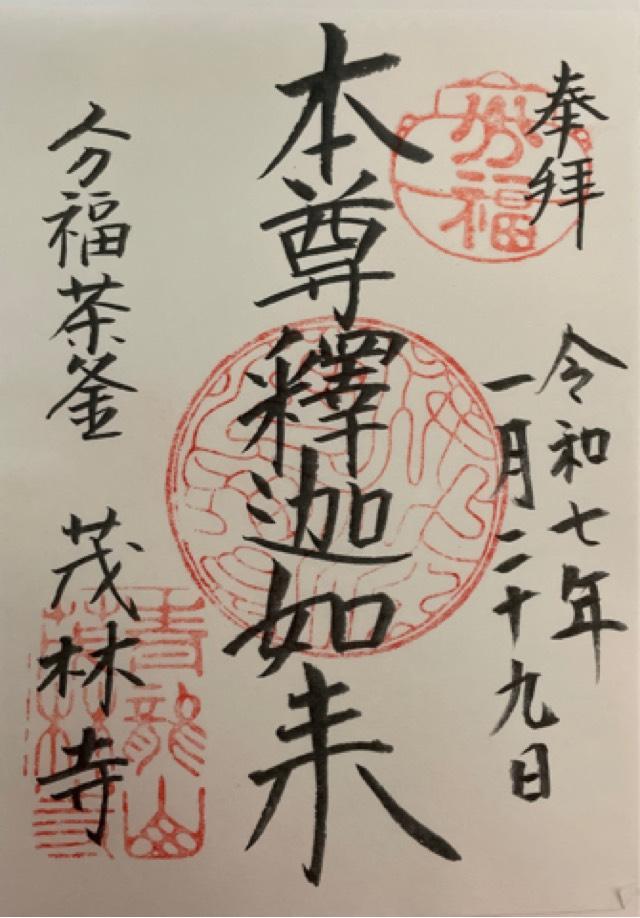 奉拝
令和七年
一月二十九日
本尊釋迦如来
分福茶釜 茂林寺
分福
青龍山
茂林寺